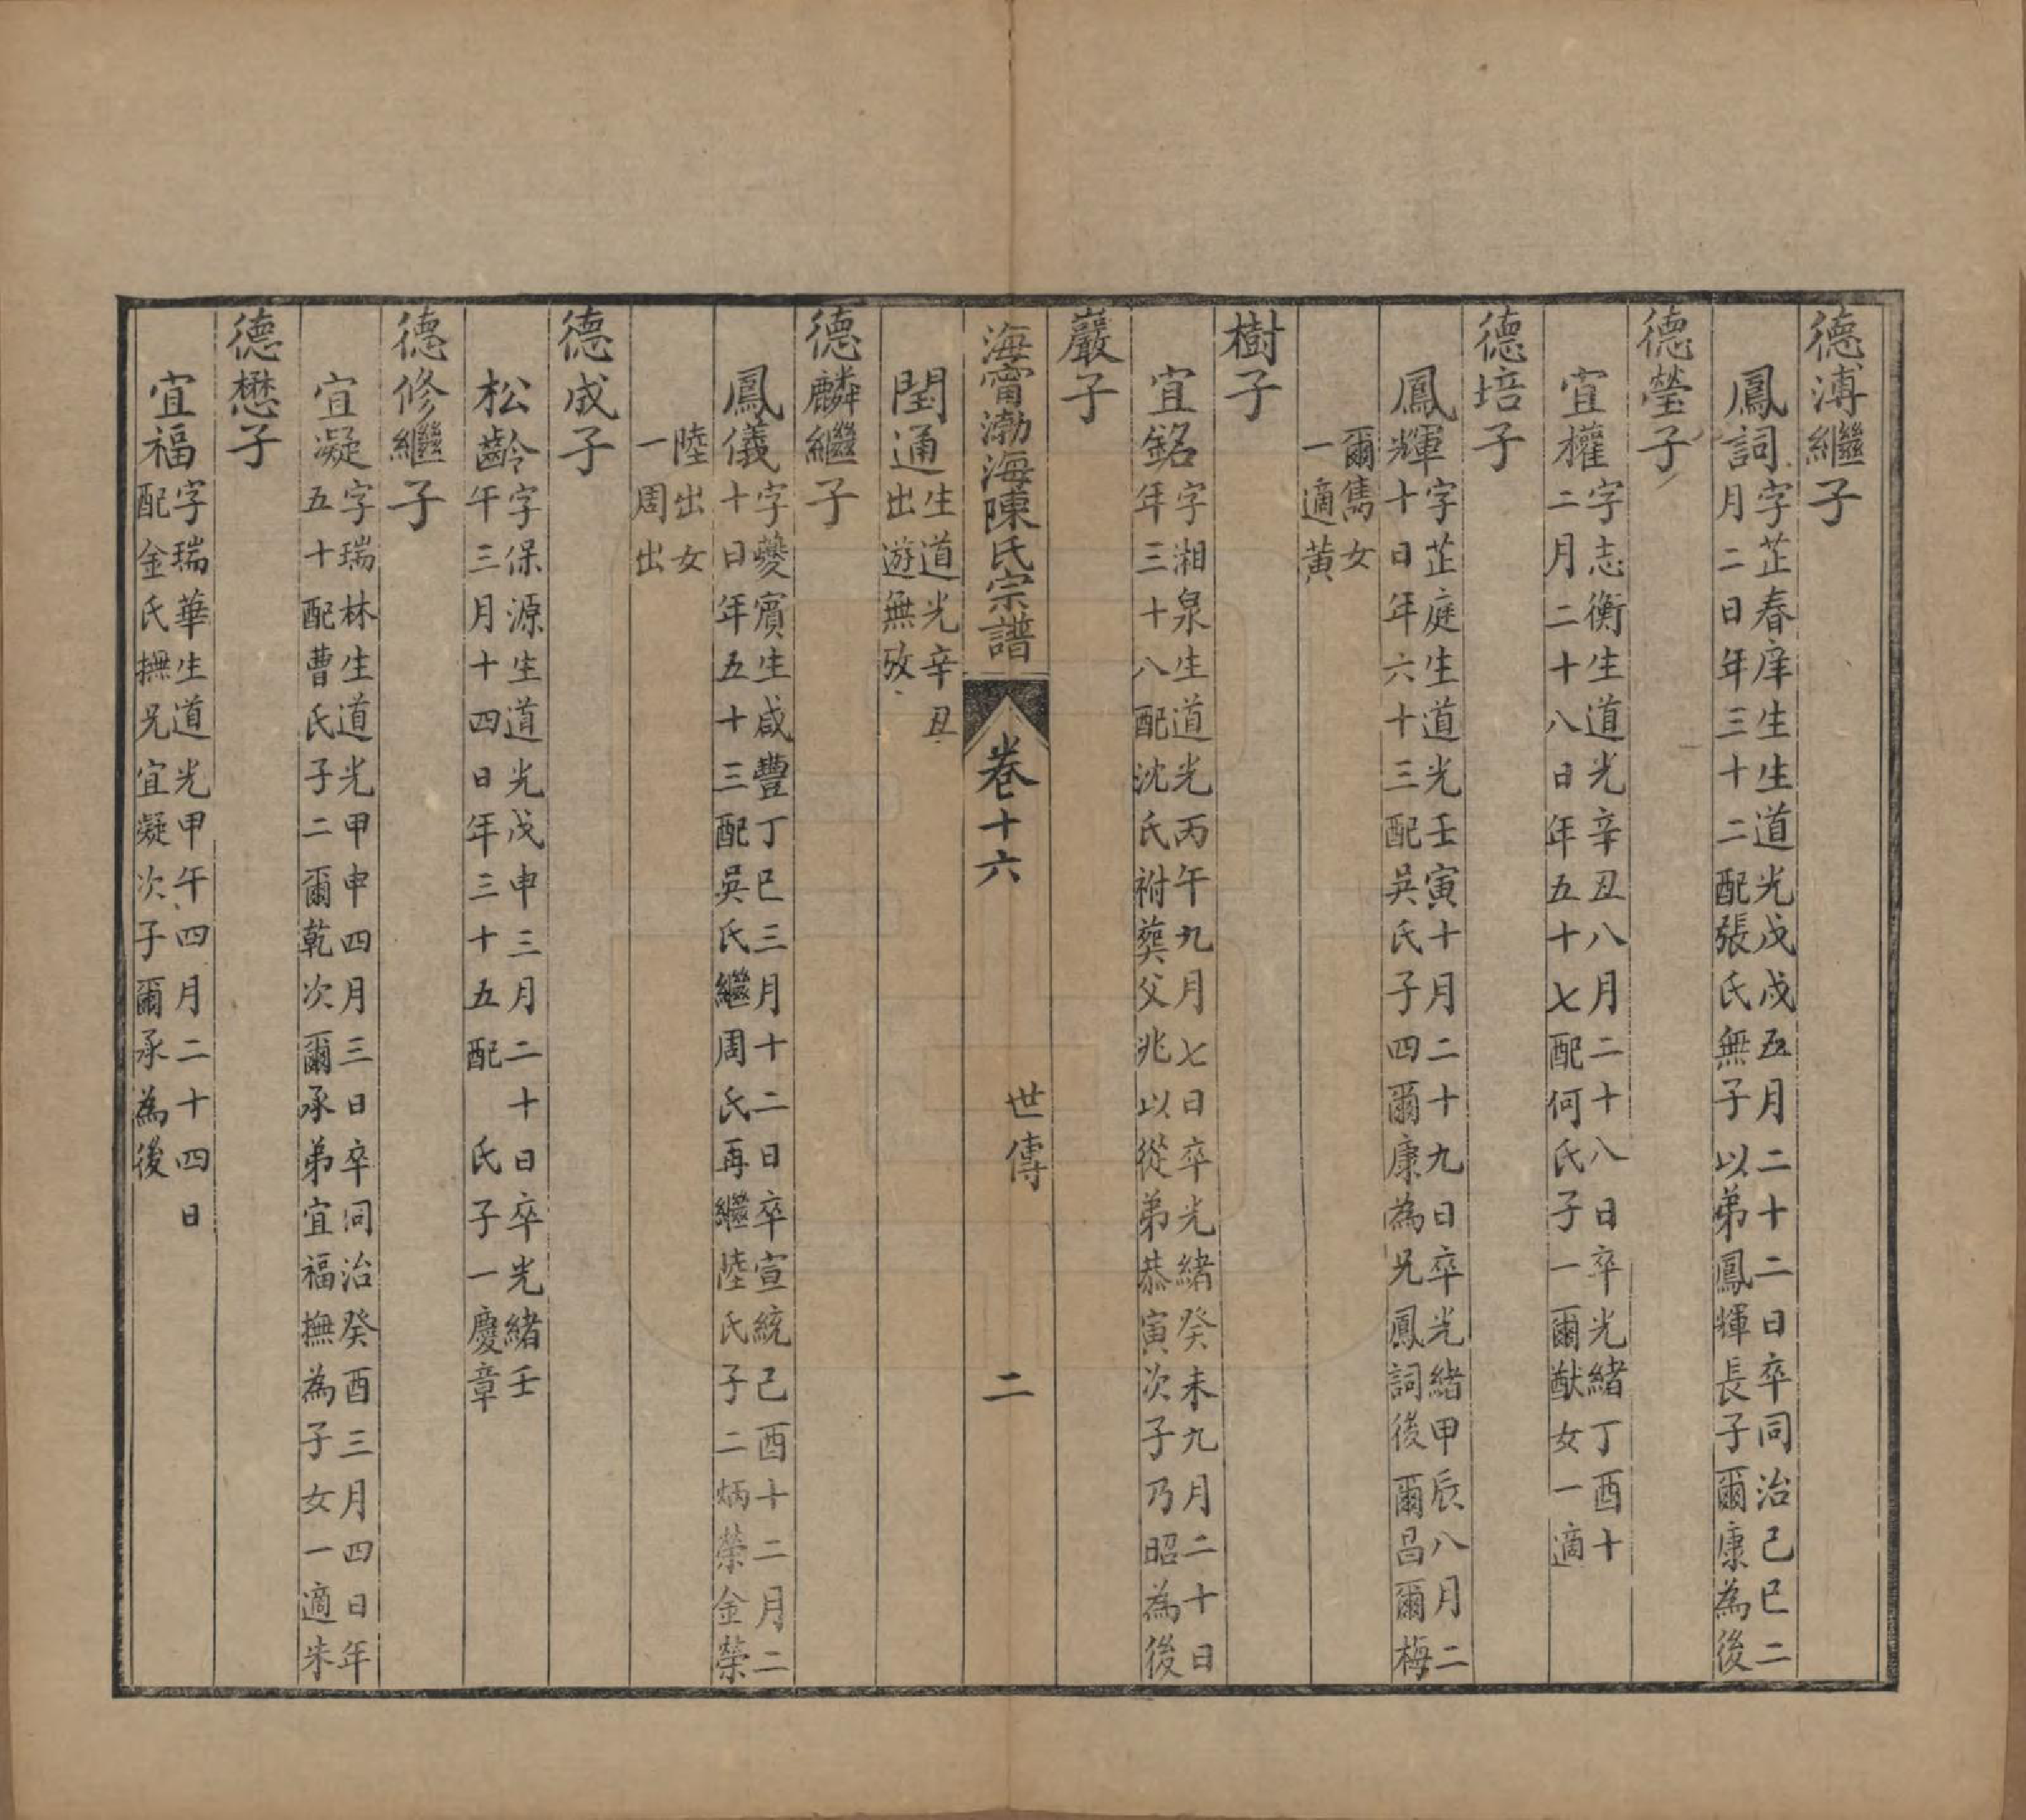 德溥繼子
鳳詞
字芷春庠生生道光戊戌五月二十二日卒同治己巳二
月二日年三十二配張氏無子以弟鳳輝長子爾康為後
德瑩子
宜權
字志衡生道光辛丑八月二十八日卒光緒丁酉十
二月二十八日年五十七配何氏子一爾猷女一適
德培子
鳳輝
字芷庭生道光壬寅十月二十九日卒光緒甲辰八月二
十日年六十三配吳氏子四爾康為兄鳳詞後爾昌爾梅
爾雋女
一適黃
樹子
宜銘
字湘泉生道光丙午九月七日卒光緒癸未九月二十日
年三十八配沈氏祔葬父兆以從弟恭寅次子乃昭為後
巖子
海甯渤海陳氏宗譜
卷十六
世傳
二
閏通
生道光辛丑
出遊無攷
德麟繼子
鳳儀
字夔賓生咸豐丁巳三月十二日卒宣統己酉十二月二
十日年五十三配吳氏繼周氏再繼陸氏子二炳榮金榮
陸出女
一周出
德成子
松齡
字保源生道光戊申三月二十日卒光緒壬
午三月十四日年三十五配 氏子一慶章
德修繼子
宜凝
字瑞林生道光甲申四月三日卒同治癸酉三月四日年
五十配曹氏子二爾乾次爾承弟宜福撫為子女一適朱
德懋子
宜福
字瑞華生道光甲午四月二十四日
配金氏撫兄宜凝次子爾承為後